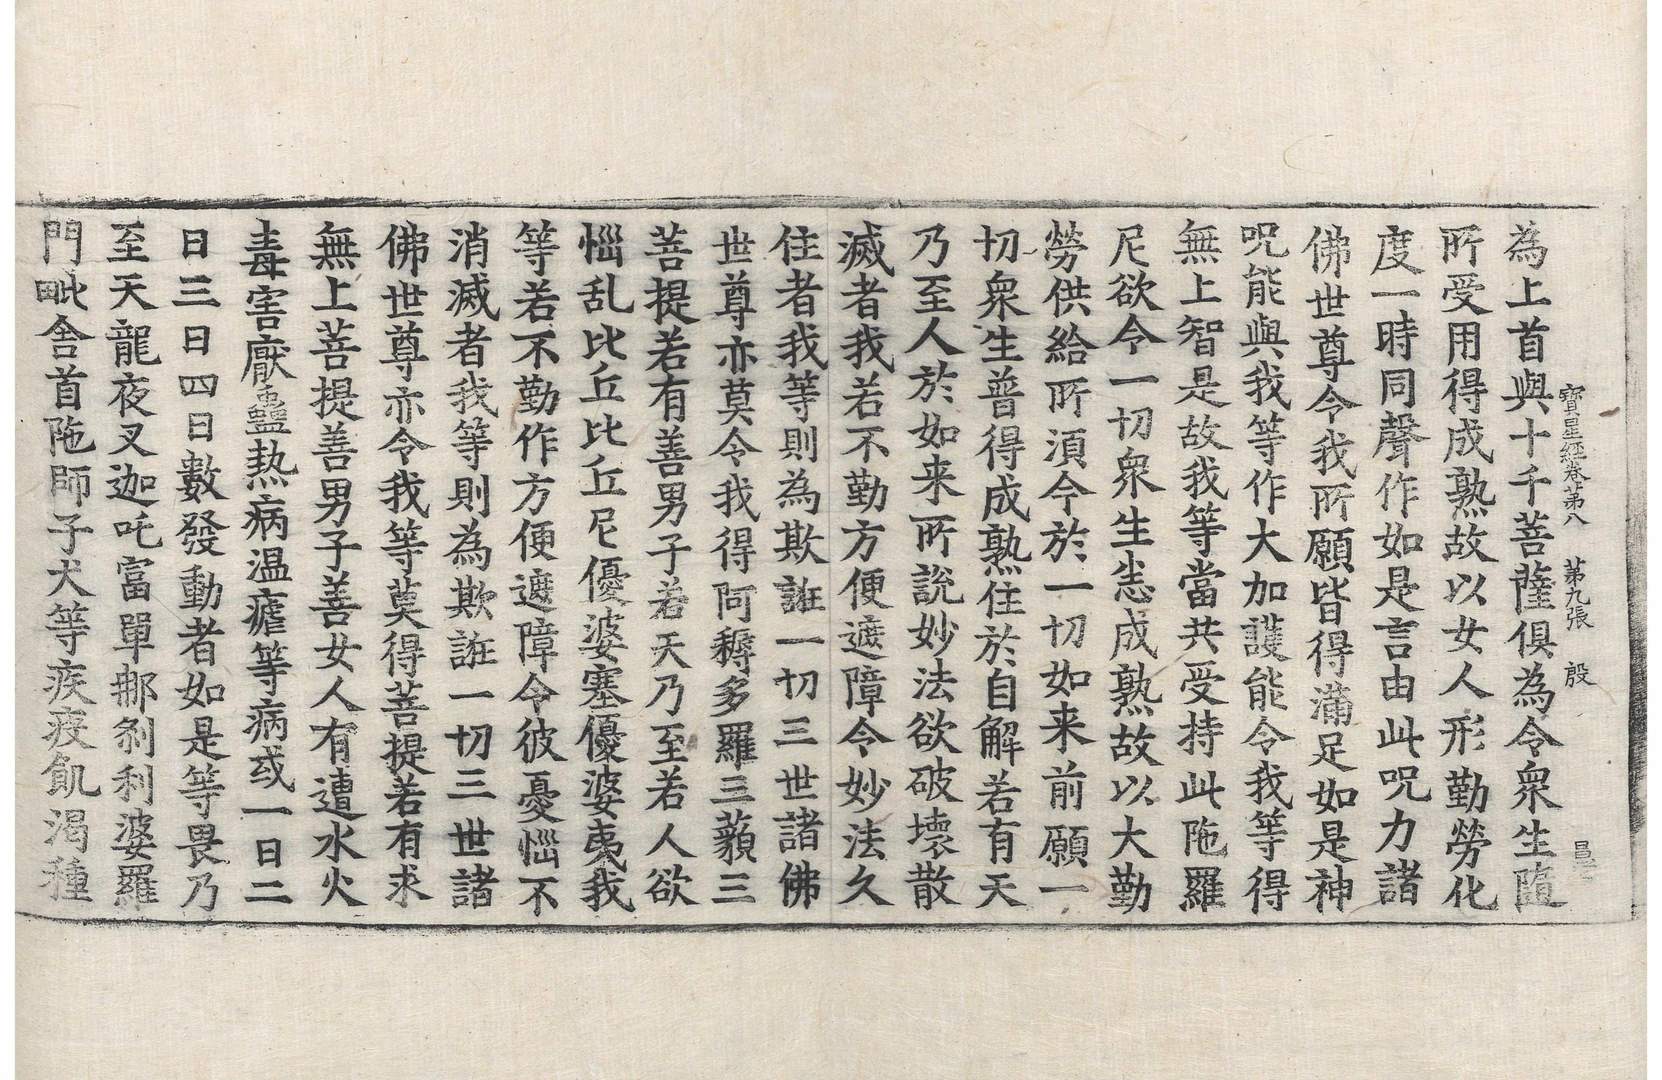 寶星經卷苐八　苐九張　殷
昌
為上首與十千菩薩俱為令衆生隨
所受用得成熟故以女人形勤勞化
度一時同聲作如是言由此呪力諸
佛世尊令我所願皆得滿足如是神
呪能與我等作大加護能令我等得
無上智是故我等當共受持此陁羅
尼欲令一切衆生恙成熟故以大勤
勞供給所湏令於一切如来前願一
切衆生普得成熟住於自解若有天
乃至人於如来所說妙法欲破壞散
滅者我若不勤方便遮障令妙法久
住者我等則為欺誑一切三世諸佛
世尊亦莫令我得阿耨多羅三藐三
菩提若有善男子若天乃至若人欲
惱乱比丘比丘尼優婆塞優婆夷我
等若不勤作方便遮障令彼憂惱不
消滅者我等則為欺誑一切三世諸
佛世尊亦令我等莫得菩提若有求
無上菩提善男子善女人有遭水火
毒害厭蠱热病温瘧等病或一日二
日三日四日數發動者如是等畏乃
至天龍夜叉迦吒富單那刹利婆羅
門毗舍首陁師子犬等疾疫飢渇種